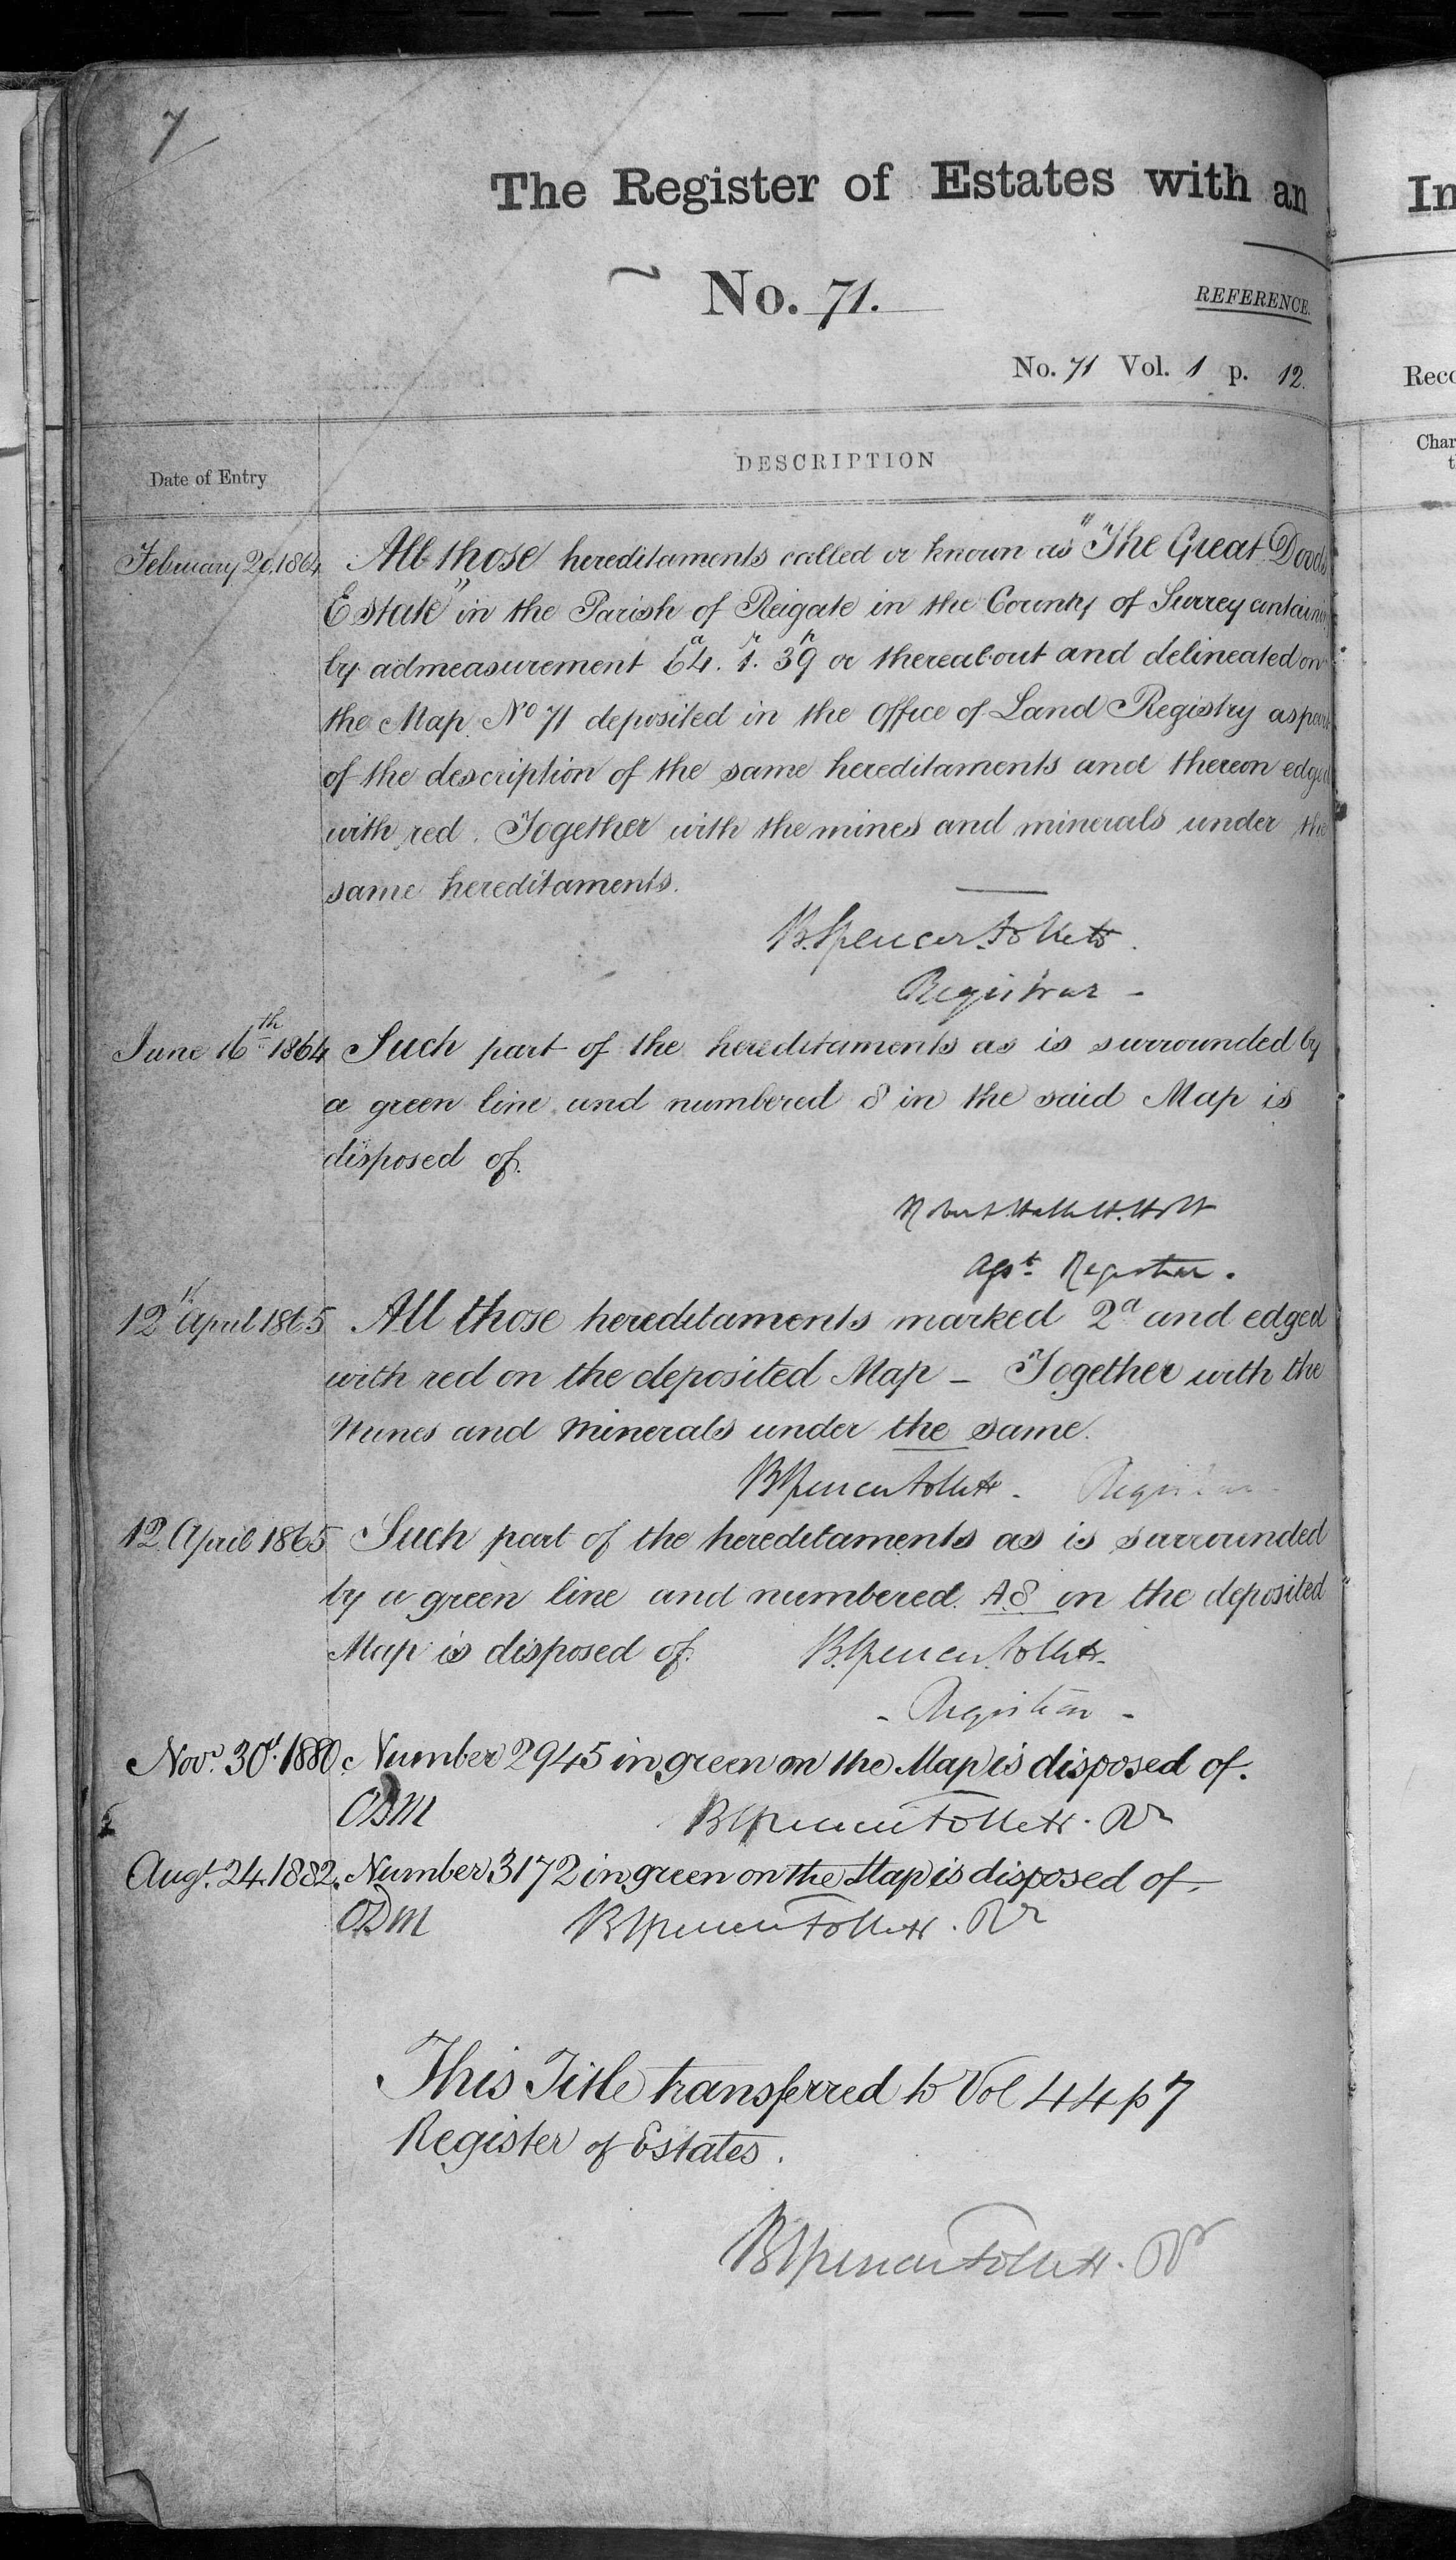 7
The Register of Estates with an
No. 71.
REFERENCE.
No. 71 Vol. 1 p. 12.
Date of Entry
DESCRIPTION
February 20, 1864 All those hereditaments called or known as "The Great Doods
Estate" in the Parish of Reigate in the County of Surrey containing
by admeasurement 64.a 1.r 39p or thereabout and delineated on
the Map No 71 deposited in the Office of Land Registry as part
of the description of the same hereditaments and thereon edged
with red. Together with the mines and minerals under the
same hereditaments.
B. Spencer Follett.
Registrar -
June 16th 1864 Such part of the hereditaments as is surrounded by
a green line and numbered 8 in the said Map is
disposed of.
Robert Hallett Holt
Asst. Registrar.
12th April 1865 All those hereditaments marked 2a and edged
with red on the deposited Map - Together with the
Mines and Minerals under the same.
B Spencer Follett - Registrar
12 April 1865 Such part of the hereditaments as is surrounded
by a green line and numbered A8 on the deposited
Map is disposed of. B. Spencer Follett
- Registrar -
Novr. 30th. 1880. Number 2945 in green on the Map is disposed of.
ODM B Spencer Follett. Rr
Augt. 24. 1882. Number 3172 in green on the Map is disposed of.
ODM B Spencer Follett. Rr
This Title transferred to Vol 44 p 7
Register of Estates.
B Spencer Follett. Rr
In
Reco
Char
t